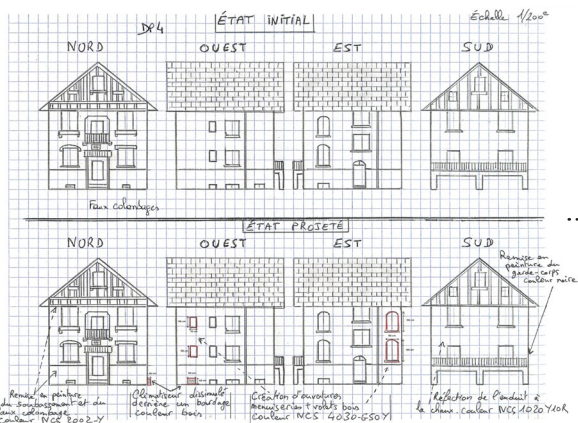 DP4
ÉTAT INITIAL
Échelle 1/200e
NORD
OUEST
EST
SUD
Faux colombages
ÉTAT PROJETÉ
NORD
OUEST
EST
SUD
Remise en
peinture du
garde-corps
couleur noire
Remise en peinture
du soubassement et du
faux colombage
couleur NCS 2002-Y
Climatiseur dissimulé
derrière un bardage
couleur bois
Création d'ouvertures
menuiseries + volets bois
couleur NCS 4030-G50Y
Réfection de l'enduit à
la chaux. couleur NCS 1020Y10R